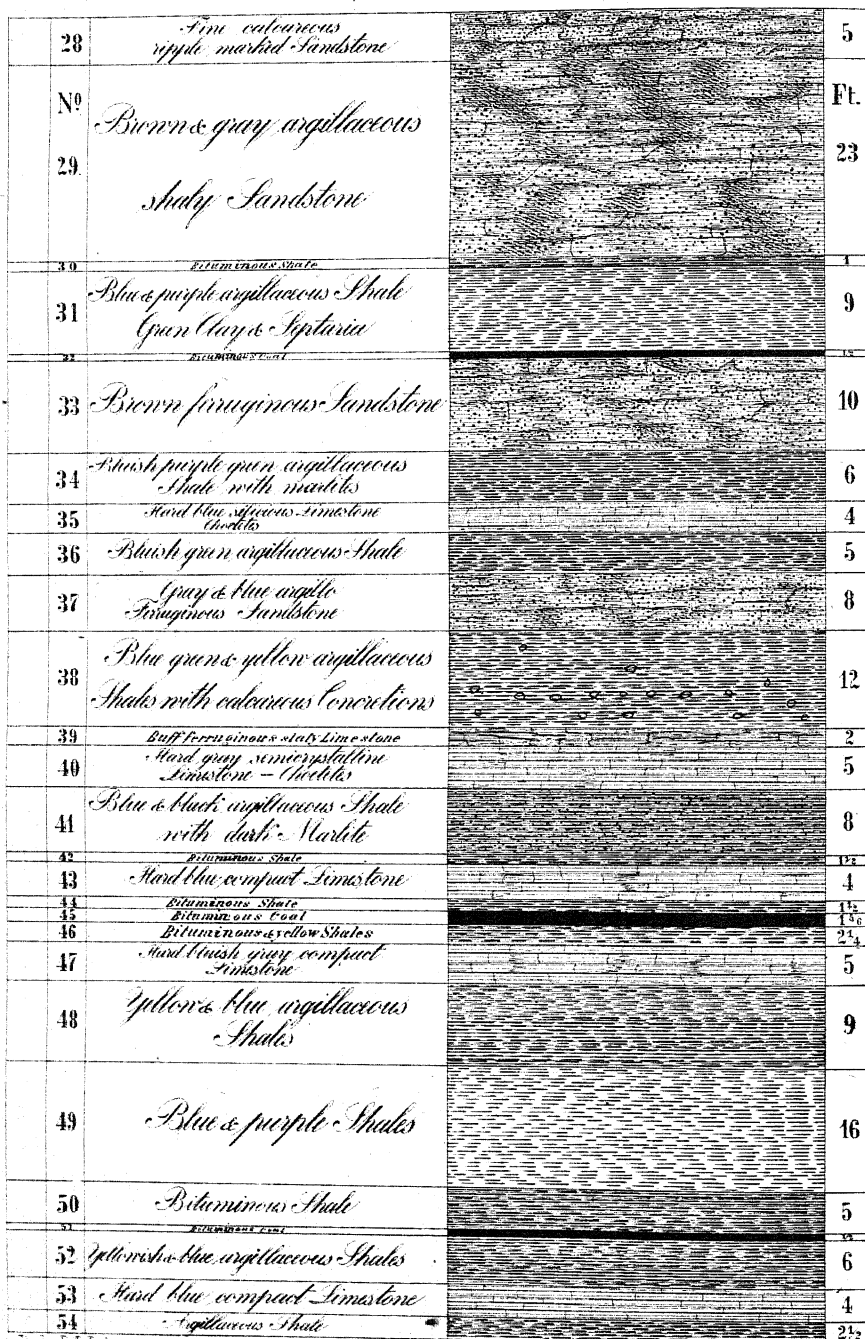 28 Fine calcareous 5
ripple marked Sandstone
No Ft.
Brown & gray argillaceous
29 23
shaly Sandstone
30 Bituminous Shale 1
Blue & purple argillaceous Shale
31 9
Green Clay & Septaria
32 Bituminous Coal 1/2
33 Brown ferruginous Sandstone 10
Bluish purple green argillaceous
34 Shale with marlites 6
Hard blue silicious Limestone
35 Choctits 4
36 Bluish green argillaceous Shale 5
Gray & blue argillo
37 Ferruginous Sandstone 8
Blue green & yellow argillaceous
38 12
Shales with calcareous Concretions
39 Buff ferruginous slaty Limestone 2
Hard gray semicrystalline
40 Limestone – Choctits 5
Blue & black argillaceous Shale
41 with dark Marlite 8
42 Bituminous Shale 1 1/2
43 Hard blue compact Limestone 4
44 Bituminous Shale 1 1/2
45 Bituminous Coal 1 5/6
46 Bituminous & yellow Shales 2 1/4
Hard bluish gray compact
47 Limestone 5
Yellow & blue argillaceous
48 Shales 9
49 Blue & purple Shales 16
50 Bituminous Shale 5
51 Bituminous Coal 1/2
52 Yellowish & blue argillaceous Shales 6
53 Hard blue compact Limestone 4
54 Argillaceous Shale 2 1/2